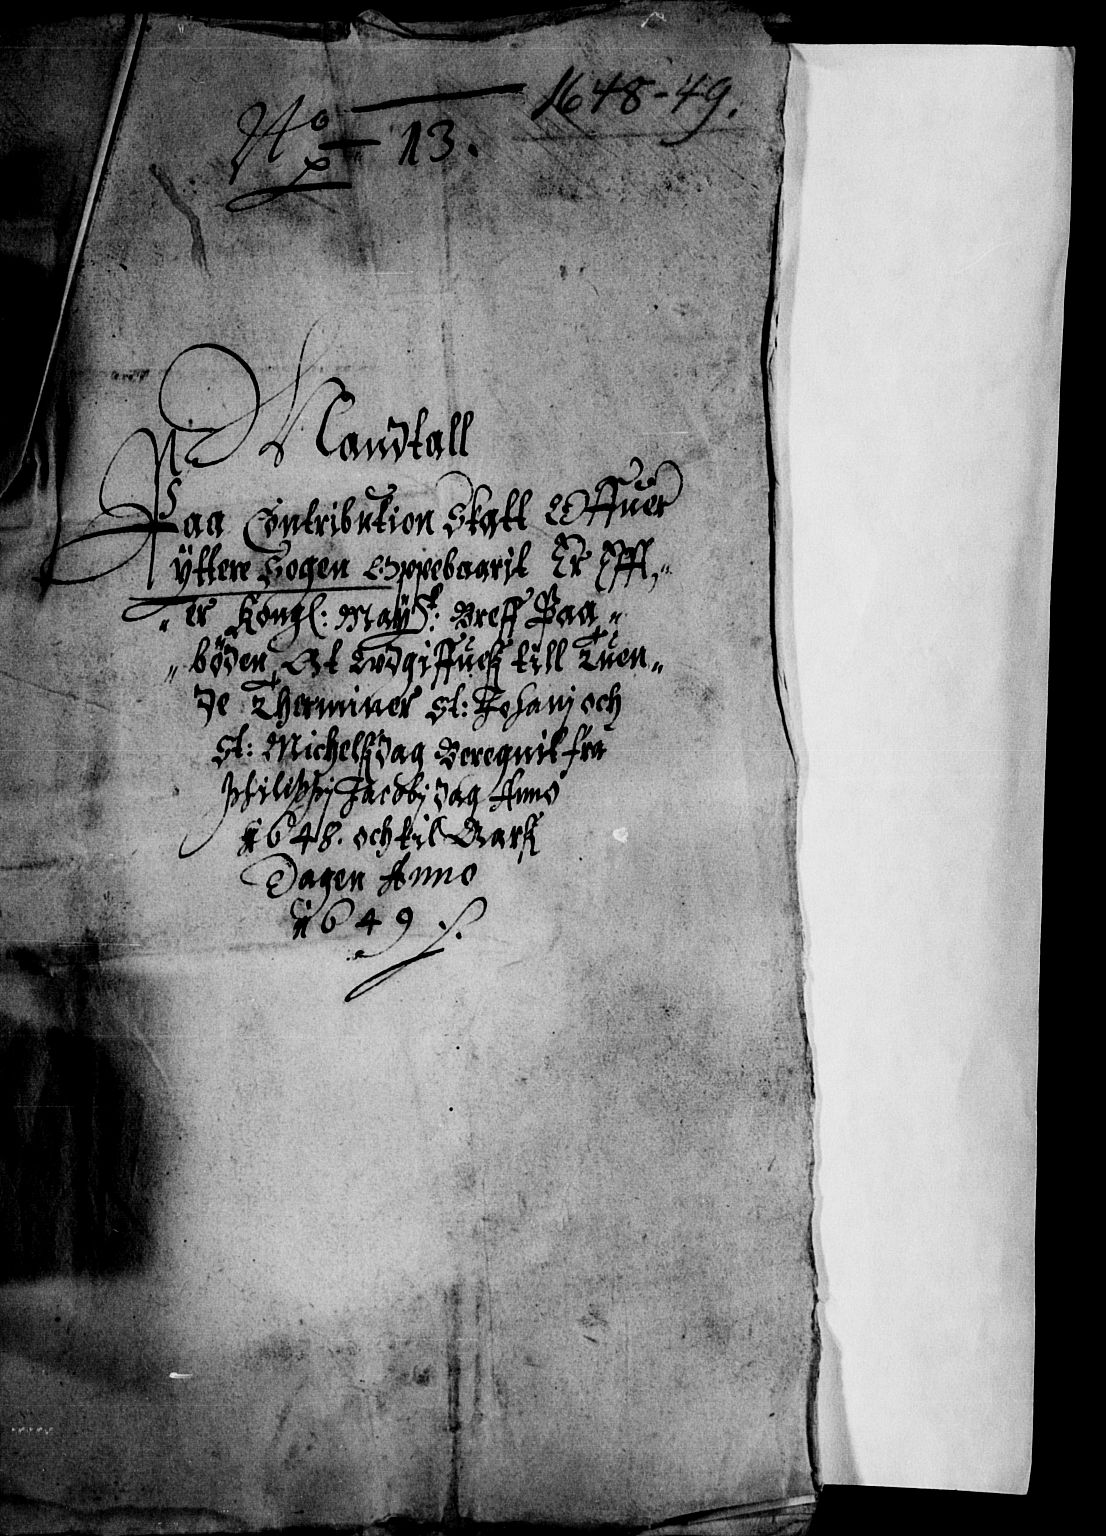 1648-49.
No 13.
Mandtall
Paa Contribution Skatt Offuer
ÿttere Sogen Oppebaaril Er Eff„
„er Kongl: Maÿtz: Breff Paa„
„böden At Wdgiffueß till Tuen„
de Therminer St: Johanj och
St: Michelßdag Beregnit fra
Philippj Jacobj dag Anno
1648. och til Aarß
Dagen Anno
1649